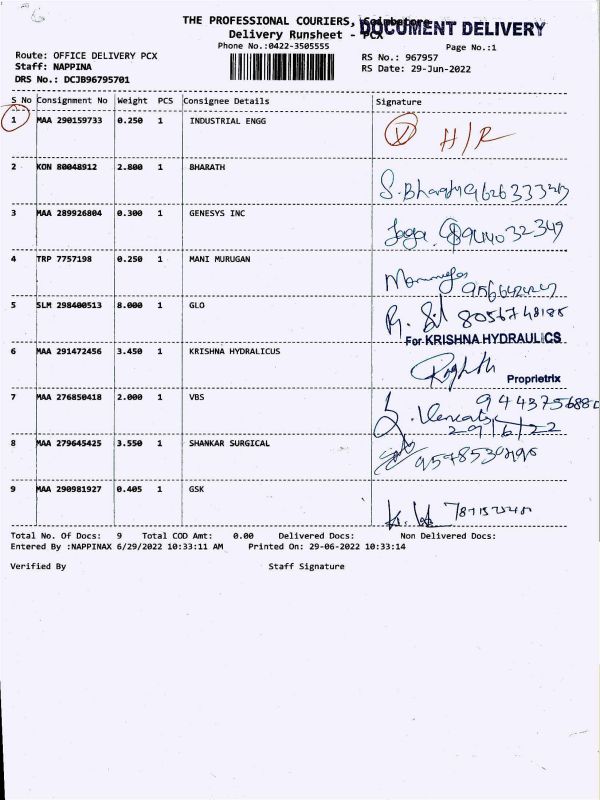 THE PROFESSIONAL COURIERS, Coimbatore
DOCUMENT DELIVERY
Delivery Runsheet - PCX
Phone No.:0422-3505555
Page No.:1
Route: OFFICE DELIVERY PCX
Staff: NAPPINA
DRS No.: DCJB96795701
RS No.: 967957
RS Date: 29-Jun-2022
S No Consignment No Weight PCS Consignee Details Signature
1 MAA 290159733 0.250 1 INDUSTRIAL ENGG H/R
2 KON 80048912 2.800 1 BHARATH
S.Bharath
3 MAA 289926804 0.300 1 GENESYS INC
Jaga
4 TRP 7757198 0.250 1 MANI MURUGAN
5 SLM 298400513 8.000 1 GLO
8056748188
For KRISHNA HYDRAULICS
6 MAA 291472456 3.450 1 KRISHNA HYDRALICUS
Proprietrix
7 MAA 276850418 2.000 1 VBS
29/6/22
8 MAA 279645425 3.550 1 SHANKAR SURGICAL
9 MAA 290981927 0.405 1 GSK
Total No. Of Docs: 9 Total COD Amt: 0.00 Delivered Docs: Non Delivered Docs:
Entered By :NAPPINAX 6/29/2022 10:33:11 AM Printed On: 29-06-2022 10:33:14
Verified By Staff Signature